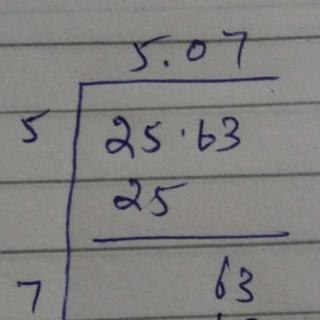 5.07
5 25.63
25
7 63